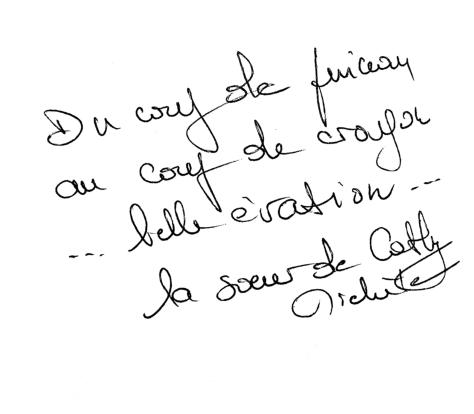 Du coup de pinceau
au coup de crayon
... belle évasion ...
la soeur de Cathy